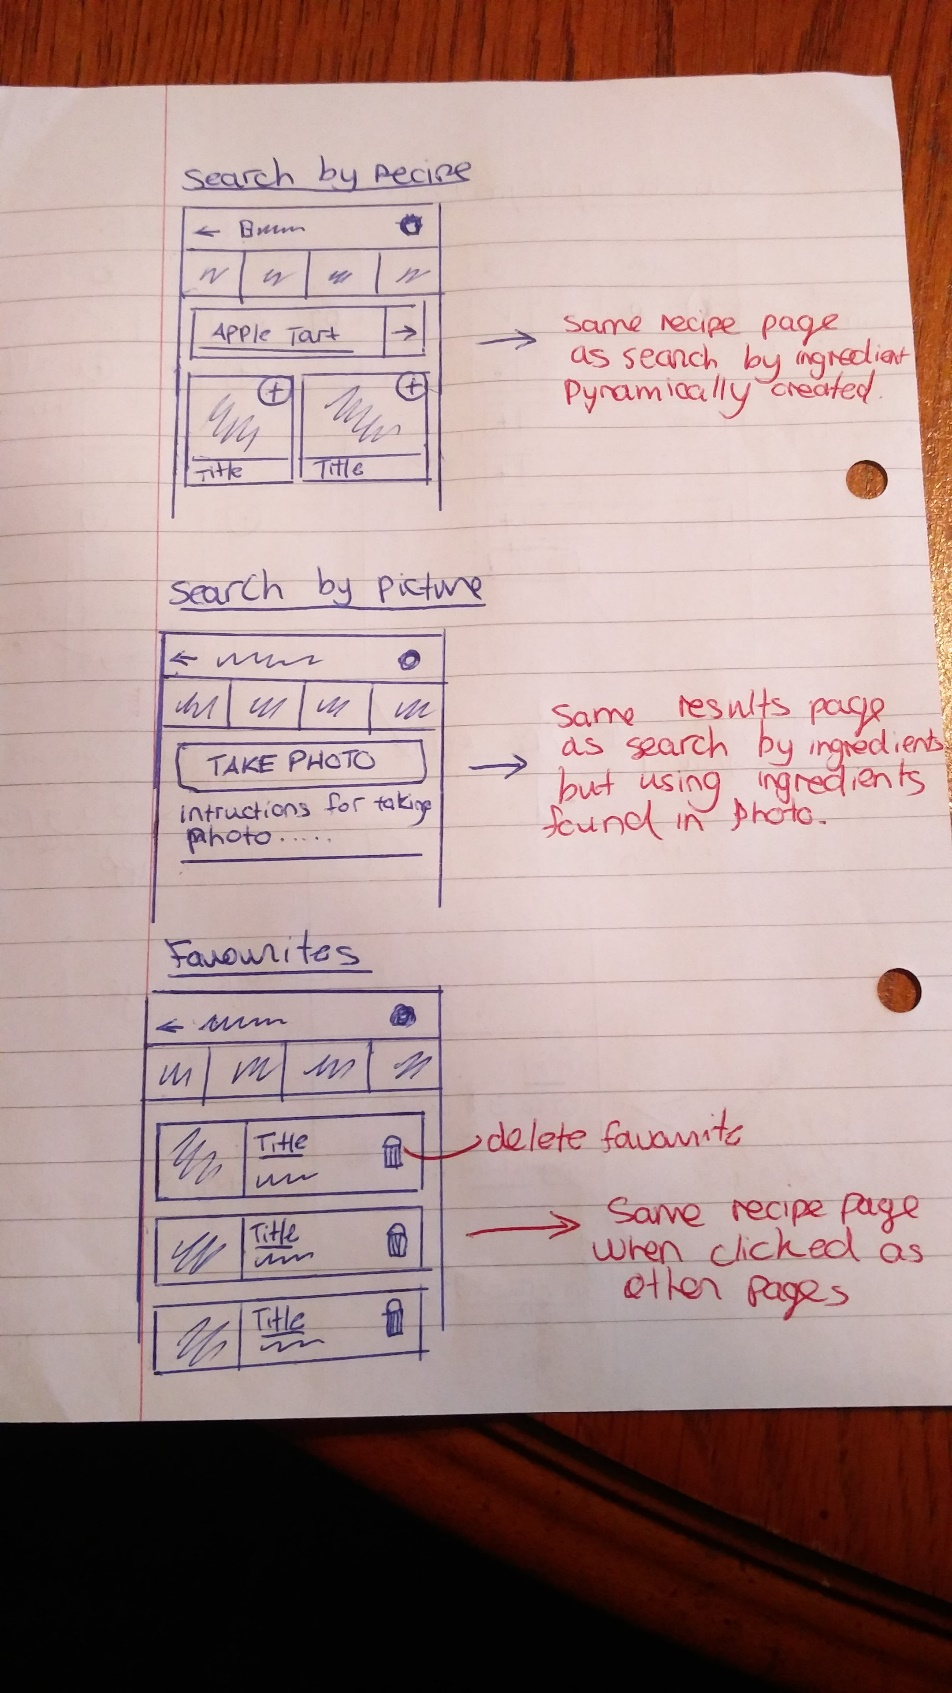 Search by recipe
APPle Tart
Title
Title
Same recipe page
as search by ingredient
Dynamically created.
Search by picture
TAKE PHOTO
intructions for taking
photo.....
Same results page
as search by ingredients
but using ingredients
found in photo.
Favourites
Title
delete favourite
Title
Title
Same recipe page
when clicked as
other pages